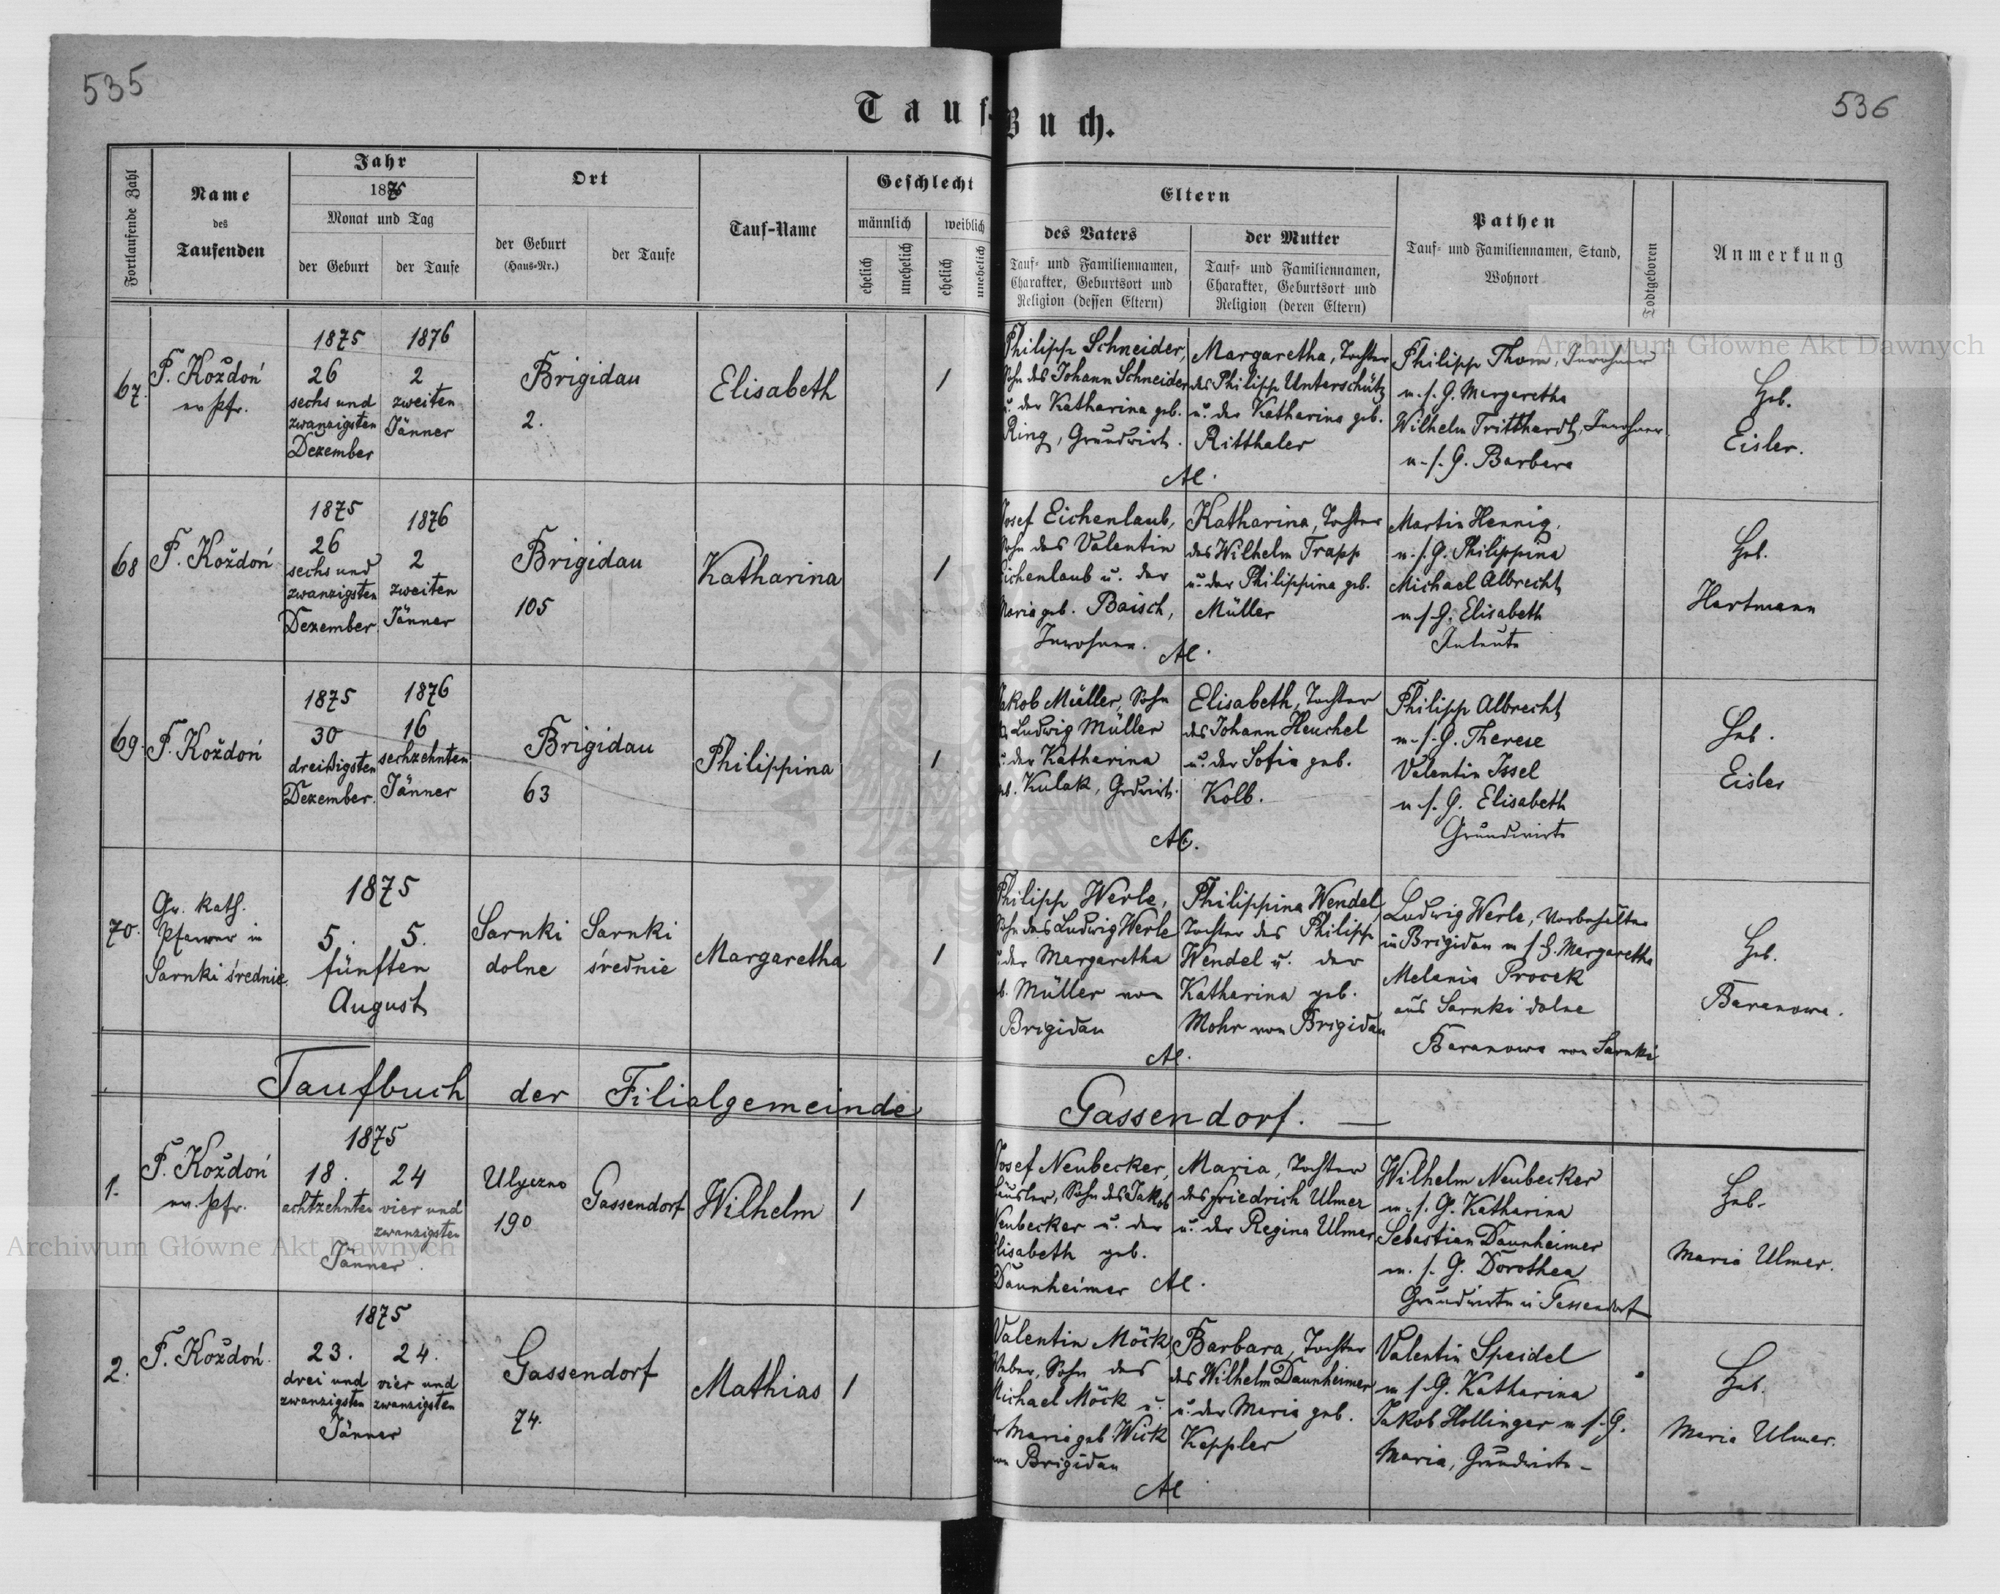 535
536
Tauf-Buch.
Fortlaufende Zahl
Name
des
Taufenden
Jahr
1875
Monat und Tag
der Geburt
der Taufe
Ort
der Geburt
(Haus-Nr.)
der Taufe
Tauf-Name
Geschlecht
männlich
weiblich
ehelich
unehelich
ehelich
unehelich
Eltern
des Vaters
Tauf- und Familiennamen,
Charakter, Geburtsort und
Religion (dessen Eltern)
der Mutter
Tauf- und Familiennamen,
Charakter, Geburtsort und
Religion (deren Eltern)
Pathen
Tauf- und Familiennamen, Stand,
Wohnort
Todtgeboren
Anmerkung
67.
F. Koždoń
ev. Pfr.
1875
26
sechs und
zwanzigsten
Dezember
1876
2
zweiten
Jänner
Brigidau
2.
Elisabeth
1
Philipp Schneider,
Sohn des Johann Schneider
u. der Katharina geb.
Ring, Grundwirth.
Margaretha, Tochter
des Philipp Unterschütz
u. der Katharina geb.
Ritthaler
AC.
Philipp Thom, Inwohner
u. s. G. Margaretha
Wilhelm Tritthardt, Inwohner
u. s. G. Barbara
Heb.
Eisler.
68
F. Koždoń
1875
26
sechs und
zwanzigsten
Dezember
1876
2
zweiten
Jänner
Brigidau
105
Katharina
1
Josef Eichenlaub,
Sohn des Valentin
Eichenlaub u. der
Maria geb. Baisch,
Inwohner.
Katharina, Tochter
des Wilhelm Trapp
u. der Philippina geb.
Müller
AC.
Martin Hennig,
u. s. G. Philippina
Michael Albrecht,
u. s. G. Elisabeth
Heb.
Hartmann
69.
F. Koždoń
1875
30
dreißigsten
Dezember.
1876
16
sechzehnten
Jänner
Brigidau
63
Philippina
1
Jakob Müller, Sohn
Ludwig Müller
u. der Katharina
geb. Kulak, Grdwirth.
Elisabeth, Tochter
des Johann Heuchel
u. der Sofia geb.
Kolb.
AC.
Philipp Albrecht,
u. s. G. Therese
Valentin Issel
u. s. G. Elisabeth
Grundwirte
Heb.
Eisler
70.
Gr. kath.
Pfarrer in
Sarnki średnie
1875
5.
5.
fünften
August
Sarnki
dolne
Sarnki
średnie
Margaretha
1
Philipp Werle,
Sohn des Ludwig Werle
u. der Margaretha
geb. Müller von
Brigidau
Philippina Wendel,
Tochter des Philipp
Wendel u. der
Katharina geb.
Mohr von Brigidau
AC.
Ludwig Werle,
in Brigidau u. s. G. Margaretha
Melania Procek
aus Sarnki dolne
Baranowa von Sarnki
Heb.
Baranowa.
Taufbuch der Filialgemeinde Gassendorf. —
1.
F. Koždoń
ev. Pfr.
1875
18.
achtzehnten
24
vier und
zwanzigsten
Jänner.
Ulyczno
190
Gassendorf
Wilhelm
1
Josef Neubecker,
Häusler, Sohn des Jakob
Neubecker u. der
Elisabeth geb.
Daunheimer
Maria, Tochter
des Friedrich Ulmer
u. der Regina Ulmer
AC.
Wilhelm Neubecker
u. s. G. Katharina
Sebastian Daunheimer
u. s. G. Dorothea
Grundwirte in Gassendorf
Heb.
Maria Ulmer.
2.
F. Koždoń
1875
23.
drei und
zwanzigsten
24.
vier und
zwanzigsten
Jänner
Gassendorf
74.
Mathias
1
Valentin Möck
Weber, Sohn des
Michael Möck u.
der Maria geb. Wick
von Brigidau
Barbara, Tochter
des Wilhelm Daunheimer
u. der Maria geb.
Keppler
AC
Valentin Speidel
u. s. G. Katharina
Jakob Hollinger u. s. G.
Maria, Grundwirte –
Heb.
Maria Ulmer.
Archiwum Główne Akt Dawnych
Archiwum Główne Akt Dawnych